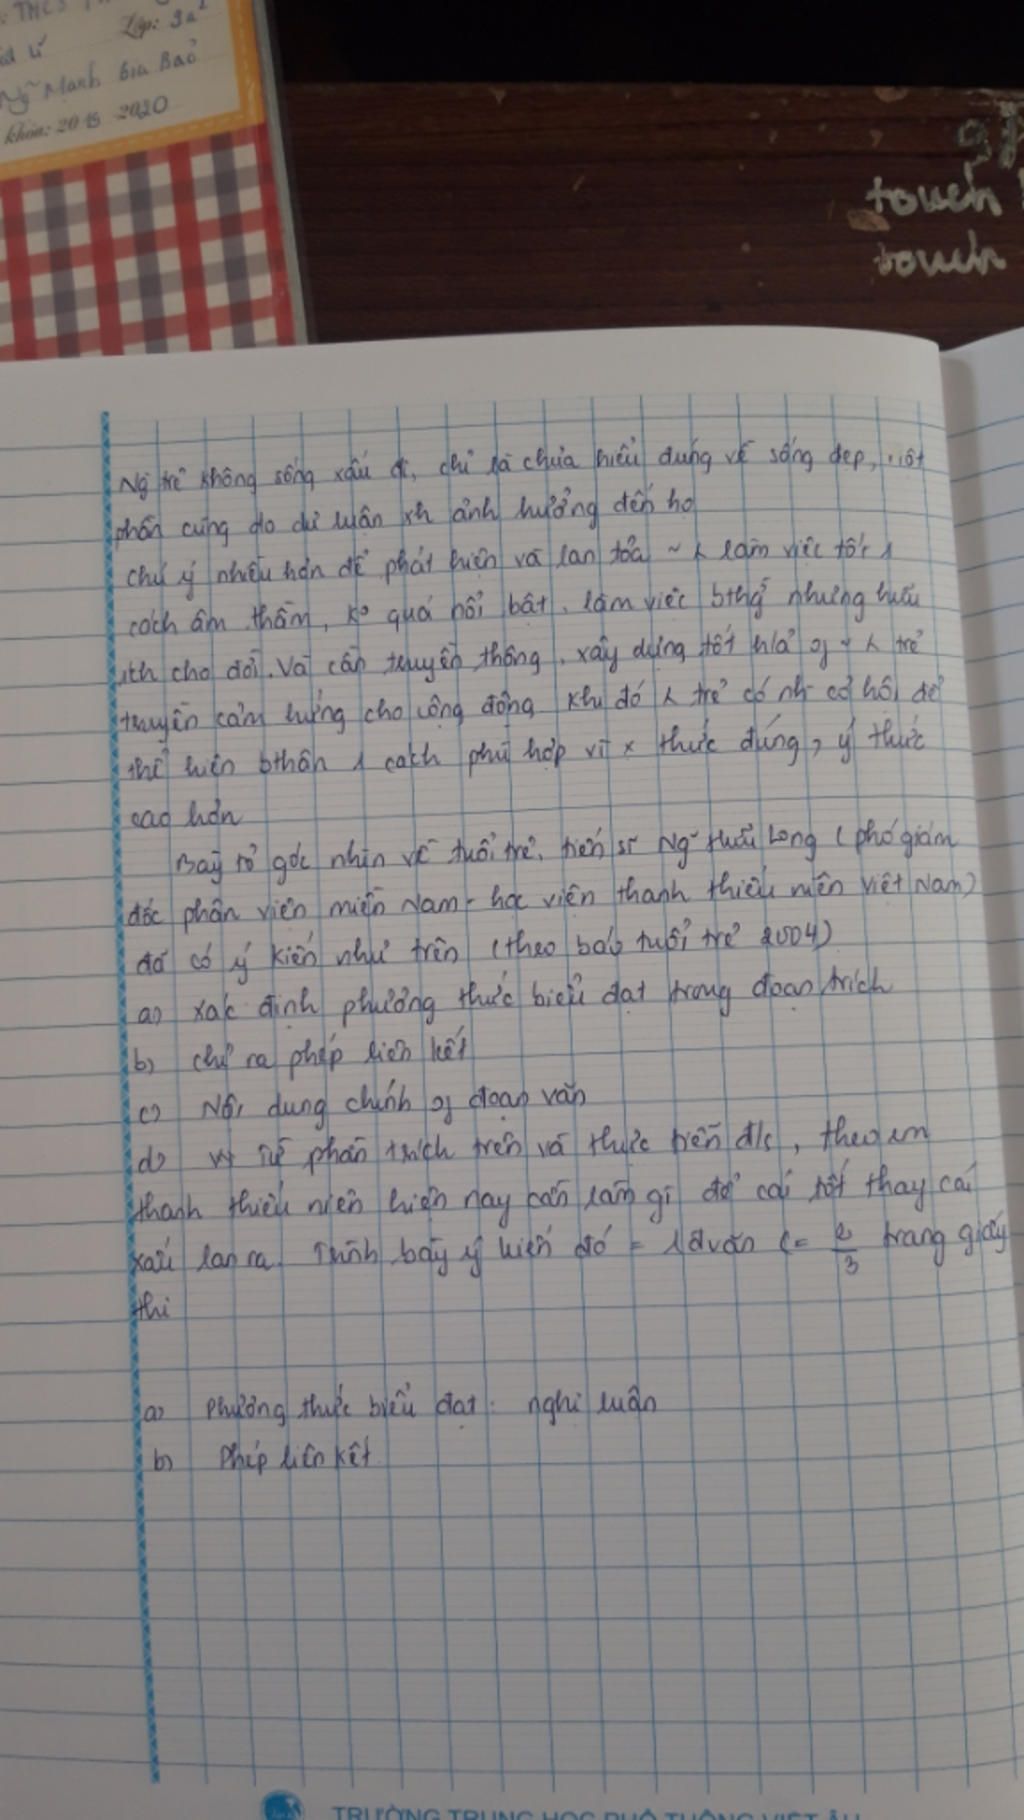 : THCS
Lớp: 9a²
Ng~ Mạnh Gia Bảo
khóa: 2019 2020
touch
touch
Ng trẻ không sống xấu đi, chỉ là chưa hiểu đúng về sống đẹp, một
phần cũng do dư luận xh ảnh hưởng đến họ
chú ý nhiều hơn để phát hiện và lan tỏa ~ k làm việc tốt 1
cách âm thầm, ko quá nổi bật, làm việc bthg nhưng hữu
ích cho đời. Và cần truyền thông, xây dựng tốt h/ả of ~ k trẻ
truyền cảm hứng cho cộng đồng khi đó k trẻ có nh cơ hội để
thể hiện bthân 1 cách phù hợp với x thức đúng, ý thức
cao hơn
Bày tỏ góc nhìn về tuổi trẻ, tiến sĩ Ng~ Hải Long (phó giám
đốc phân viện miền Nam - học viện thanh thiếu niên Việt Nam)
đã có ý kiến như trên (theo báo tuổi trẻ 2004)
a) xác định phương thức biểu đạt trong đoạn trích
b) chỉ ra phép liên kết
c) Nội dung chính of đoạn văn
d) từ phần trích trên và thực tiễn đ/s, theo em
thanh thiếu niên hiện nay cần làm gì để cái tốt thay cái
xấu lan ra. Trình bày ý kiến đó = 1 đvăn (= 2/3 trang giấy
thi
a) Phương thức biểu đạt: nghị luận
b) Phép liên kết
TRƯỜNG TRUNG HỌC PHỔ THÔNG VIỆT ÂU